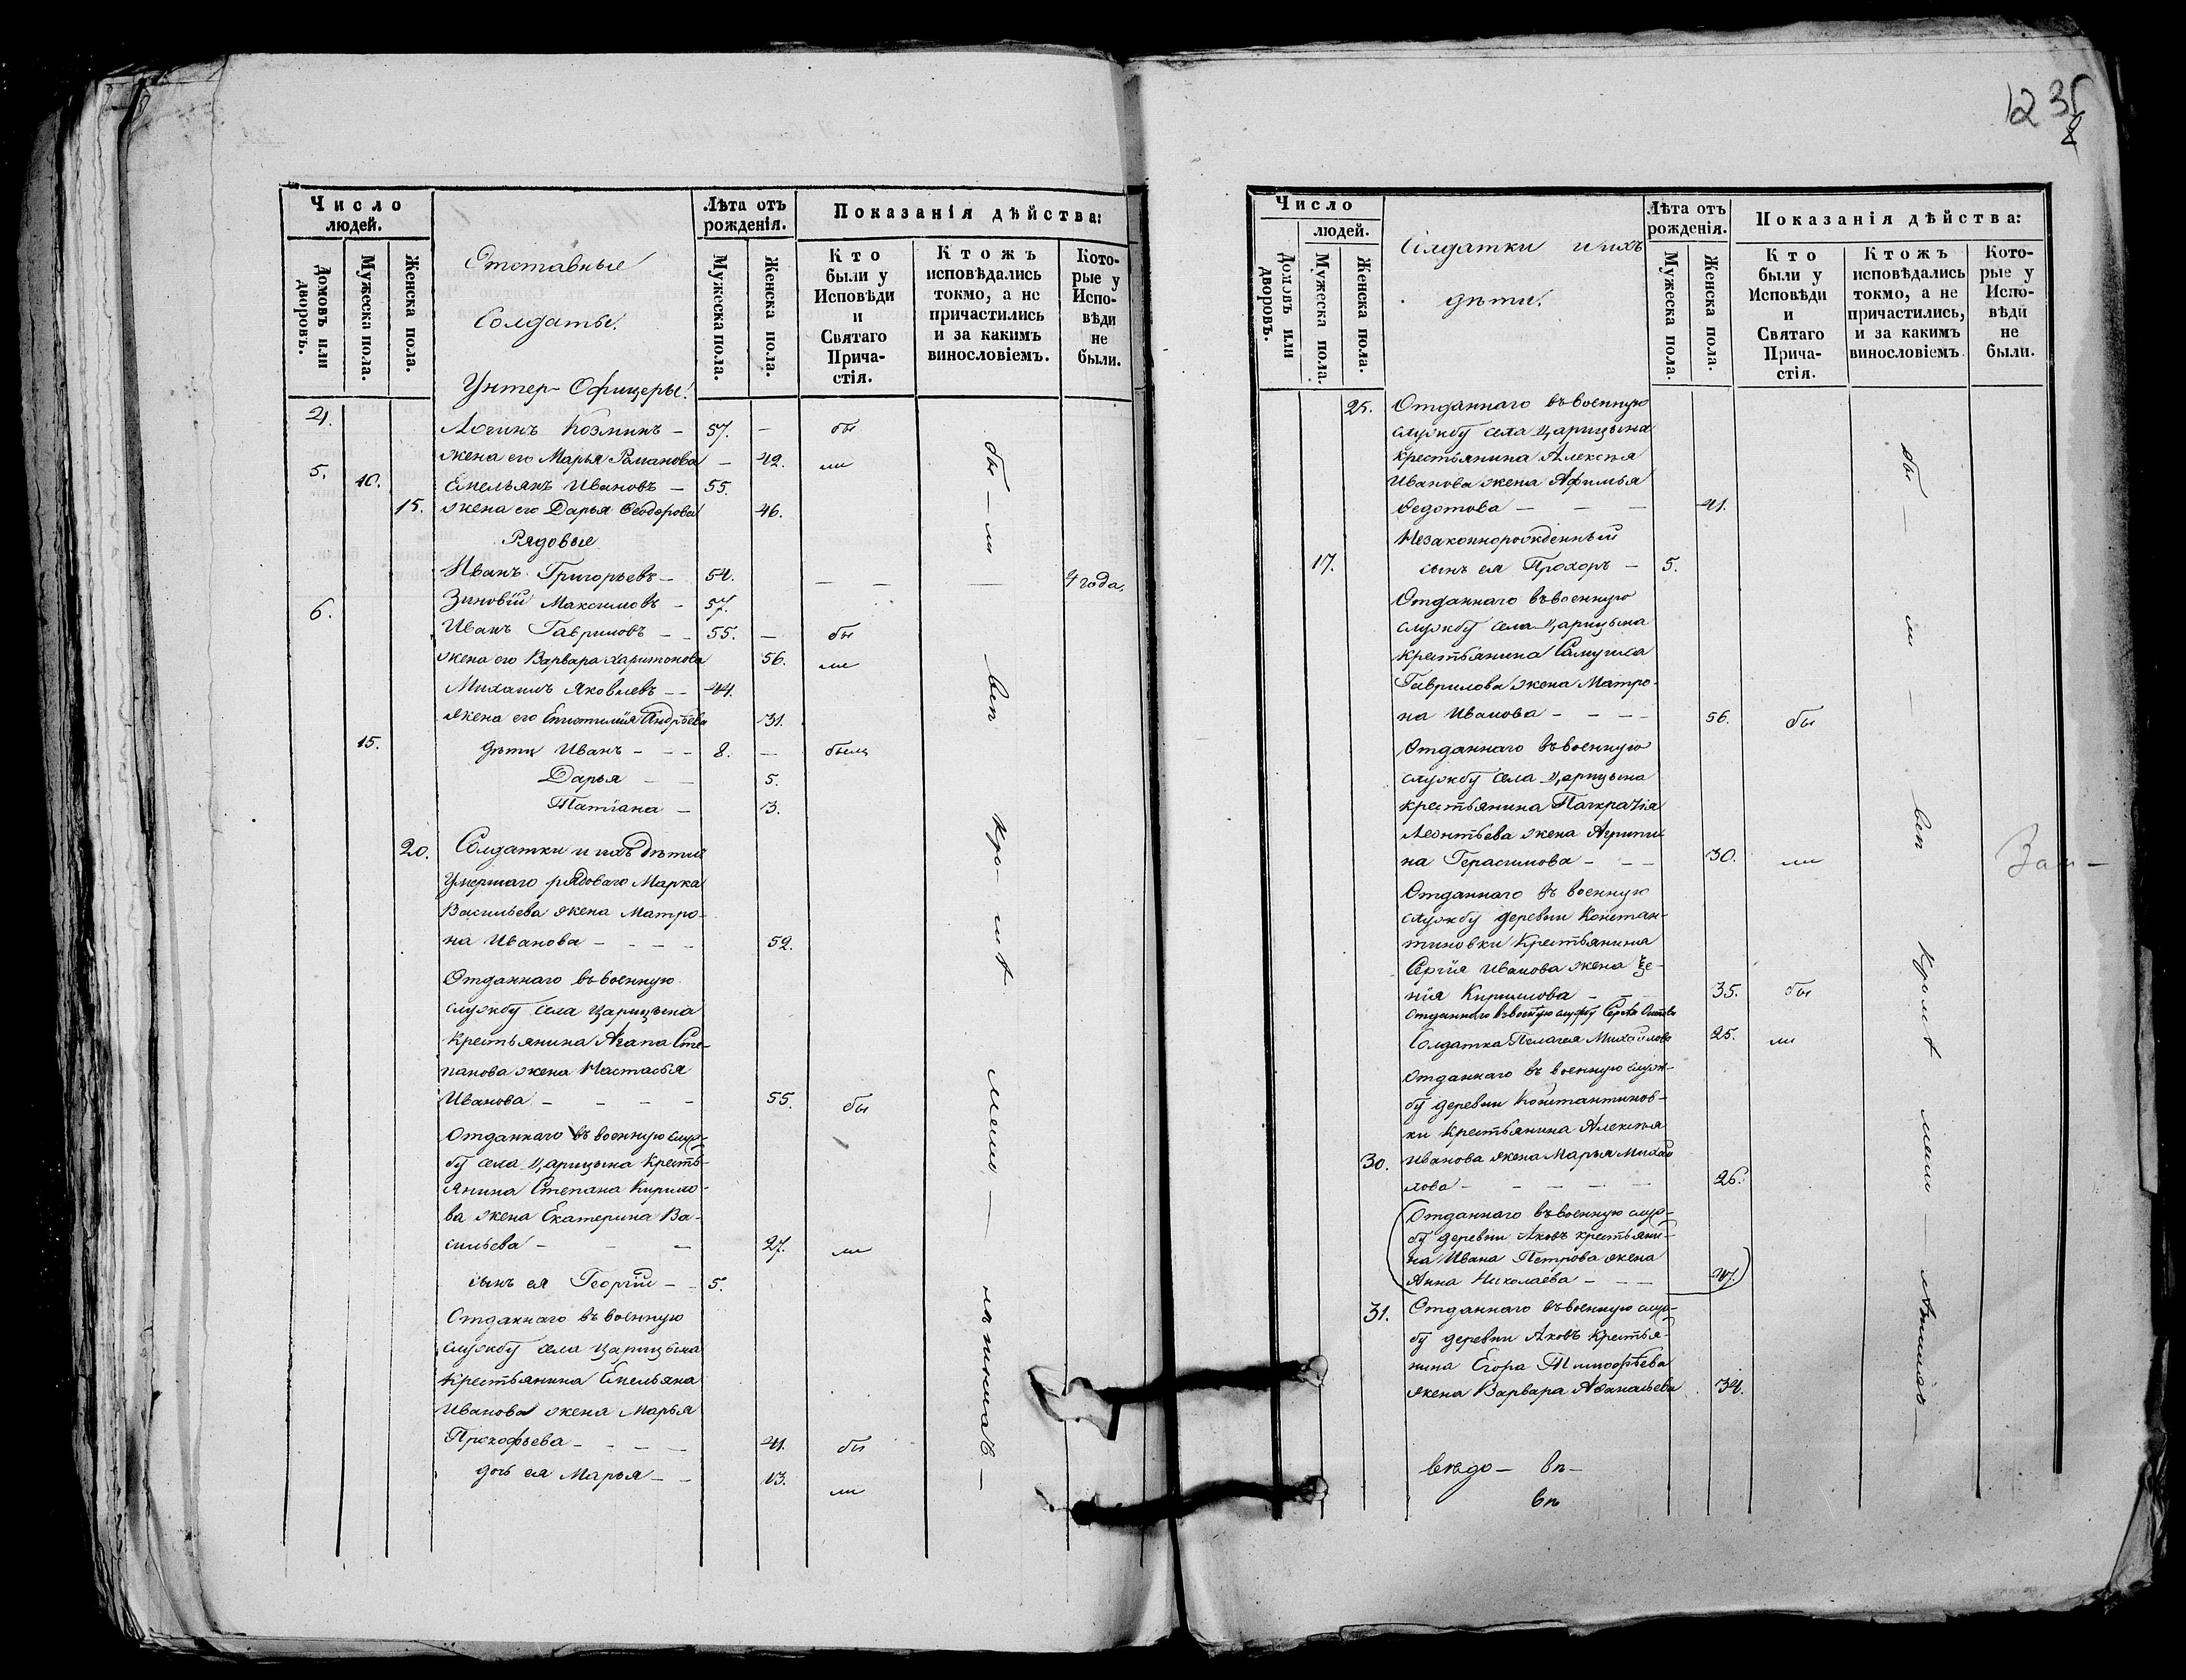 Число
людей.
Домовъ или дворовъ.
Мужеска пола.
Женска пола.
Отставные
Солдаты.
Унтер-Офицеры.
Лѣта отъ
рожденія.
Мужеска пола.
Женска пола.
Показанія дѣйства:
Кто
были у
Исповѣди
и
Святаго
Прича-
стія.
Ктожъ
исповѣдались
токмо, а не
причастились
и за какимъ
винословіемъ.
Кото-
рые у
Испо-
вѣди
не
были.
4. Логинъ Козминъ — 57. — бы
жена его Марья Романова — 42. ли
5. 10. Емельянъ Ивановъ — 55.
15. жена его Дарья Ѳеодорова 46.
Рядовые
Иванъ Григорьевъ — 54. — — — 4 года.
6. Зиновій Максимовъ — 57.
Иванъ Гавриловъ — — 55. — бы
жена его Варвара Харитонова 56. ли
Михаилъ Яковлевъ — — 44.
жена его Епистимія Андрѣева 31.
15. дѣти Иванъ — — — 8. — былъ
Дарья — — 5.
Татіана — 3.
20. Солдатки и ихъ дѣти
Умершаго рядоваго Марка
Васильева жена Матро-
на Иванова — — — — 52.
Отданнаго въ военную
службу села Царицына
Крестьянина Агапа Сте-
панова жена Настасья
Иванова — — — — 55. бы
Отданнаго въ военную служ-
бу села Царицына Кресть-
янина Степана Кирило-
ва жена Екатерина Ва-
сильева — — — 27. ли
сынъ ея Георгій — — 5.
Отданнаго въ военную
службу села Царицына
Крестьянина Емельяна
Иванова жена Марья
Прокофьева — — — — 41. бы
дочь ея Марья — — 13.
ли
бы — ли — вси кро- мѣ
123
Число
людей.
Домовъ или дворовъ.
Мужеска пола.
Женска пола.
Солдатки и ихъ
дѣти.
Лѣта отъ
рожденія.
Мужеска пола.
Женска пола.
Показанія дѣйства:
Кто
были у
Исповѣди
и
Святаго
Прича-
стія.
Ктожъ
исповѣдались
токмо, а не
причастились,
и за какимъ
винословіемъ.
Кото-
рые у
Испо-
вѣди
не
были.
25. Отданнаго въ военную
службу села Царицына
крестьянина Алексѣя
Иванова жена Афимья
Ѳедотова — — — 41.
Незаконнорожденный
17. сынъ ея Прохоръ — 5.
Отданнаго въ военную
службу села Царицына
крестьянина Самуила
Гаврилова жена Матро-
на Иванова — — — — 56. бы
Отданнаго въ военную
службу села Царицына
крестьянина Панкратія
Леонтьева жена Агрипи
на Герасимова — — — 30. ли
Отданнаго въ военную
службу деревни Констан-
тиновки Крестьянина
Сергія Иванова жена Ѯе-
нія Кирилова — — — 35. бы
Отданнаго въ военную службу Сергѣя
Солдатка Пелагея Михайлова 25. ли
Отданнаго въ военную служ-
бу деревни Константинов-
ки Крестьянина Алексѣя
30. Иванова жена Марья Михай
лова — — — — — 26.
(Отданнаго въ военную служ-
бу деревни Аховъ крестьяни-
на Ивана Петрова жена
Анна Николаева — — — 47.)
31. Отданнаго въ военную служ-
бу деревни Аховъ Крестья-
нина Егора Тимофѣева
жена Варвара Аѳанасьева 34.
бы — ли — вси кромѣ